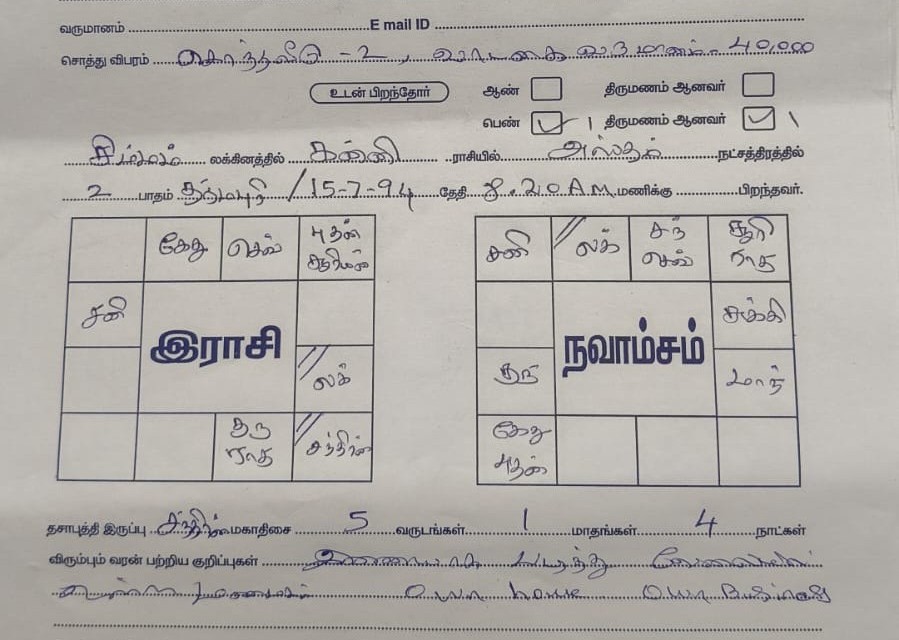 வருமானம் ........ E mail ID ........
சொத்து விபரம் சொந்தவீடு - 2, வாடகை வருமானம் - 40,000
உடன் பிறந்தோர் ஆண் திருமணம் ஆனவர்
பெண் ✓ 1 திருமணம் ஆனவர் ✓ 1
சிம்மம் லக்கினத்தில் கன்னி ராசியில் அஸ்தம் நட்சத்திரத்தில்
2 பாதம் தர்மபுரி / 15-7-94 தேதி 8.20 A.M மணிக்கு ........ பிறந்தவர்.
கேது செவ் புதன் சூரியன்
சனி
இராசி
லக்
குரு ராகு சந்திரன்
சனி லக் சந் செவ் சூரி ராகு
சுக்கி
நவாம்சம்
குரு மாந்
கேது புதன்
தசாபுத்தி இருப்பு சந்திரன் மகாதிசை 5 வருடங்கள் 1 மாதங்கள் 4 நாட்கள்
விரும்பும் வரன் பற்றிய குறிப்புகள் இணையாக படித்து வேலையில்
உள்ள Own house